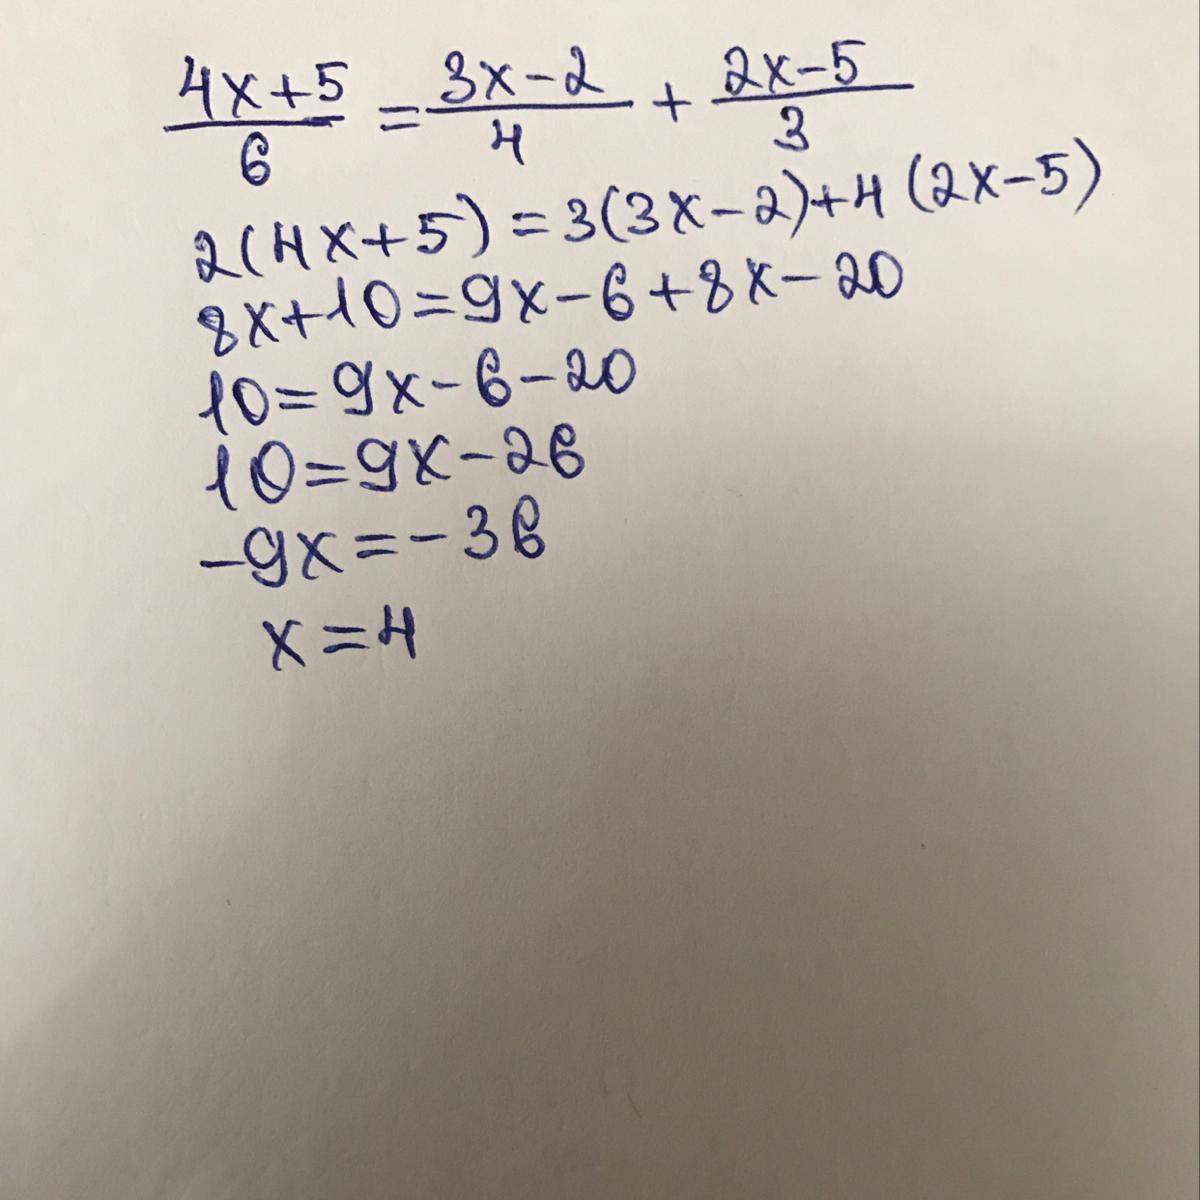 (4x+5)/6 = (3x-2)/4 + (2x-5)/3
2(4x+5)=3(3x-2)+4(2x-5)
8x+10=9x-6+8x-20
10=9x-6-20
10=9x-26
-9x=-36
x=4